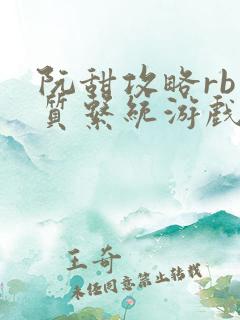 阮甜攻略rb
质系统游戏
王奇
未经同意禁止转载